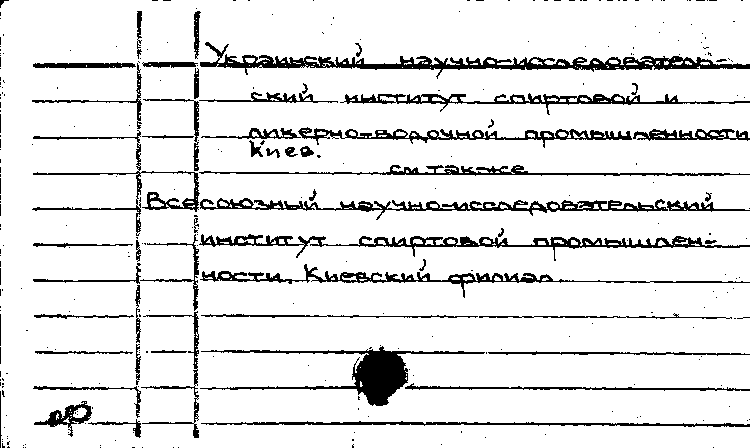 Украинский научно-исследователь-
ский институт спиртовой и
ликерно-водочной промышленности
Киев.
см также
Всесоюзный научно-исследовательский
институт спиртовой промышлен-
ности. Киевский филиал.